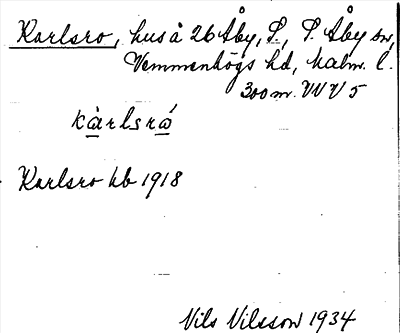 Karlsro, hus å 26 Åby, S., S. Åby sn,
Vemmenhögs hd, Malm. l.
300 m. VNV 5
kàrlsrá
Karlsro kb 1918
Nils Nilsson 1934